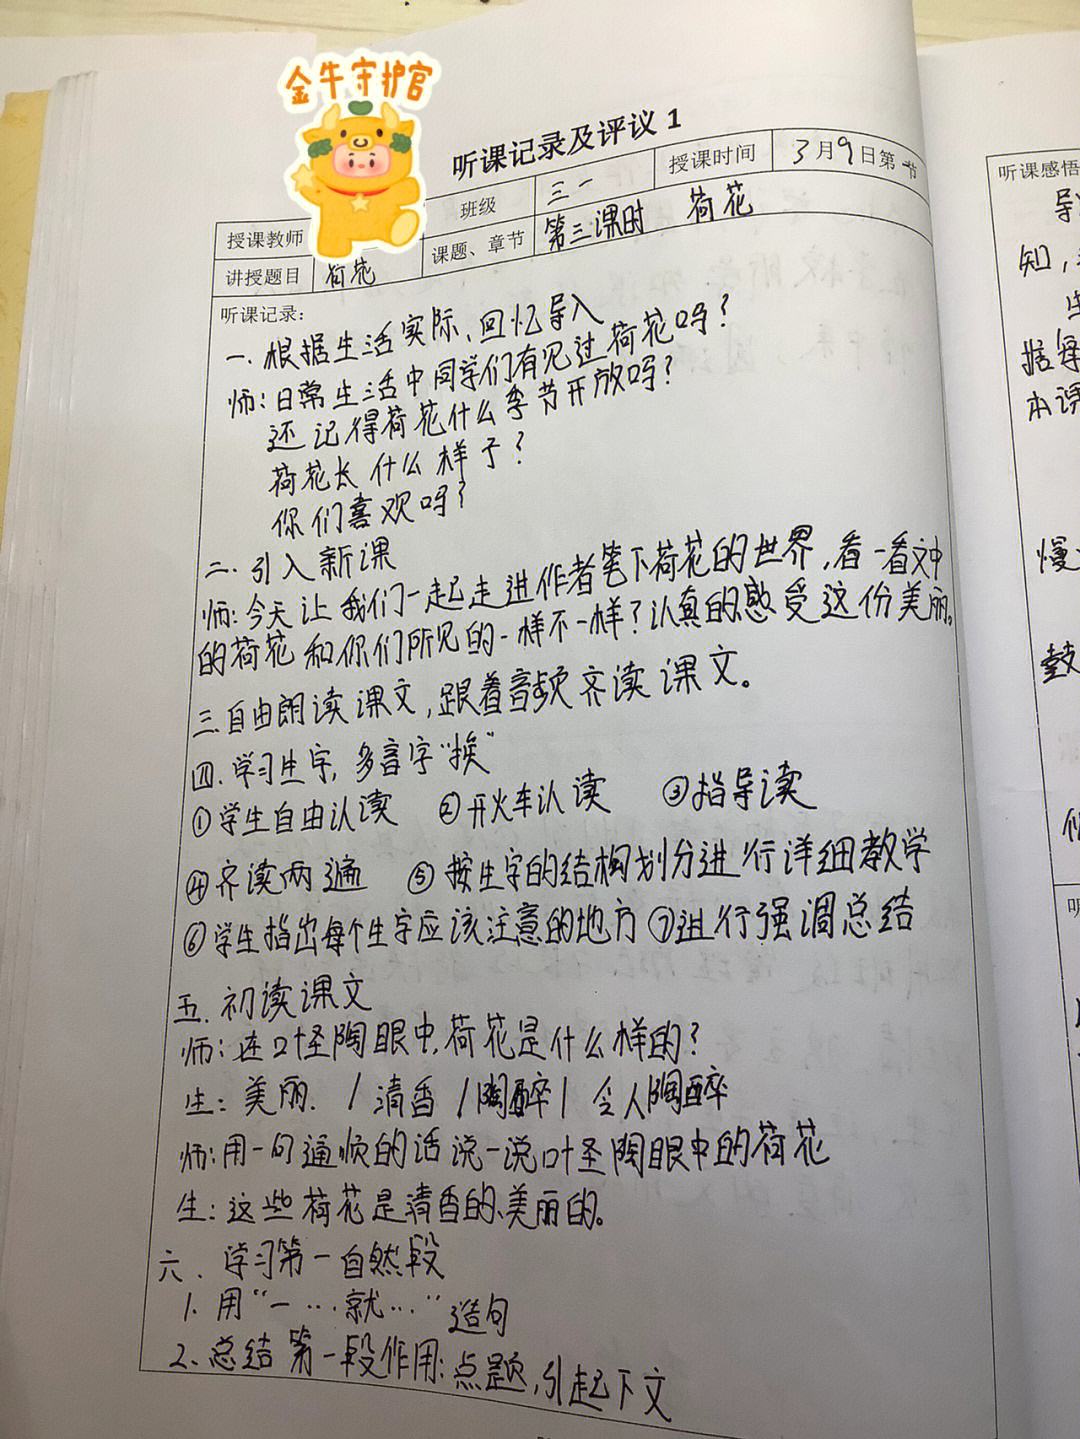 金牛守护官
听课记录及评议 1
授课教师 班级 三一 授课时间 3月9日第一节
讲授题目 荷花 课题、章节 第三课时 荷花
听课记录:
一. 根据生活实际,回忆导入
师:日常生活中同学们有见过荷花吗?
还记得荷花什么季节开放吗?
荷花长什么样子?
你们喜欢吗?
二. 引入新课
师:今天让我们一起走进作者笔下荷花的世界,看一看文中
的荷花和你们所见的一样不一样?认真的感受这份美丽。
三.自由朗读课文,跟着音频齐读课文。
四.学习生字,多音字“挨”
①学生自由认读 ②开火车认读 ③指导读
④齐读两遍 ⑤按生字的结构划分进行详细教学
⑥学生指出每个生字应该注意的地方⑦进行强调总结
五.初读课文
师:在叶圣陶眼中,荷花是什么样的?
生:美丽. / 清香 / 陶醉 / 令人陶醉
师:用一句通顺的话说一说叶圣陶眼中的荷花
生:这些荷花是清香的、美丽的。
六.学习第一自然段
1. 用“一…就…”造句
2.总结第一段作用:点题,引起下文
听课感悟
知,
据导
慢
鼓